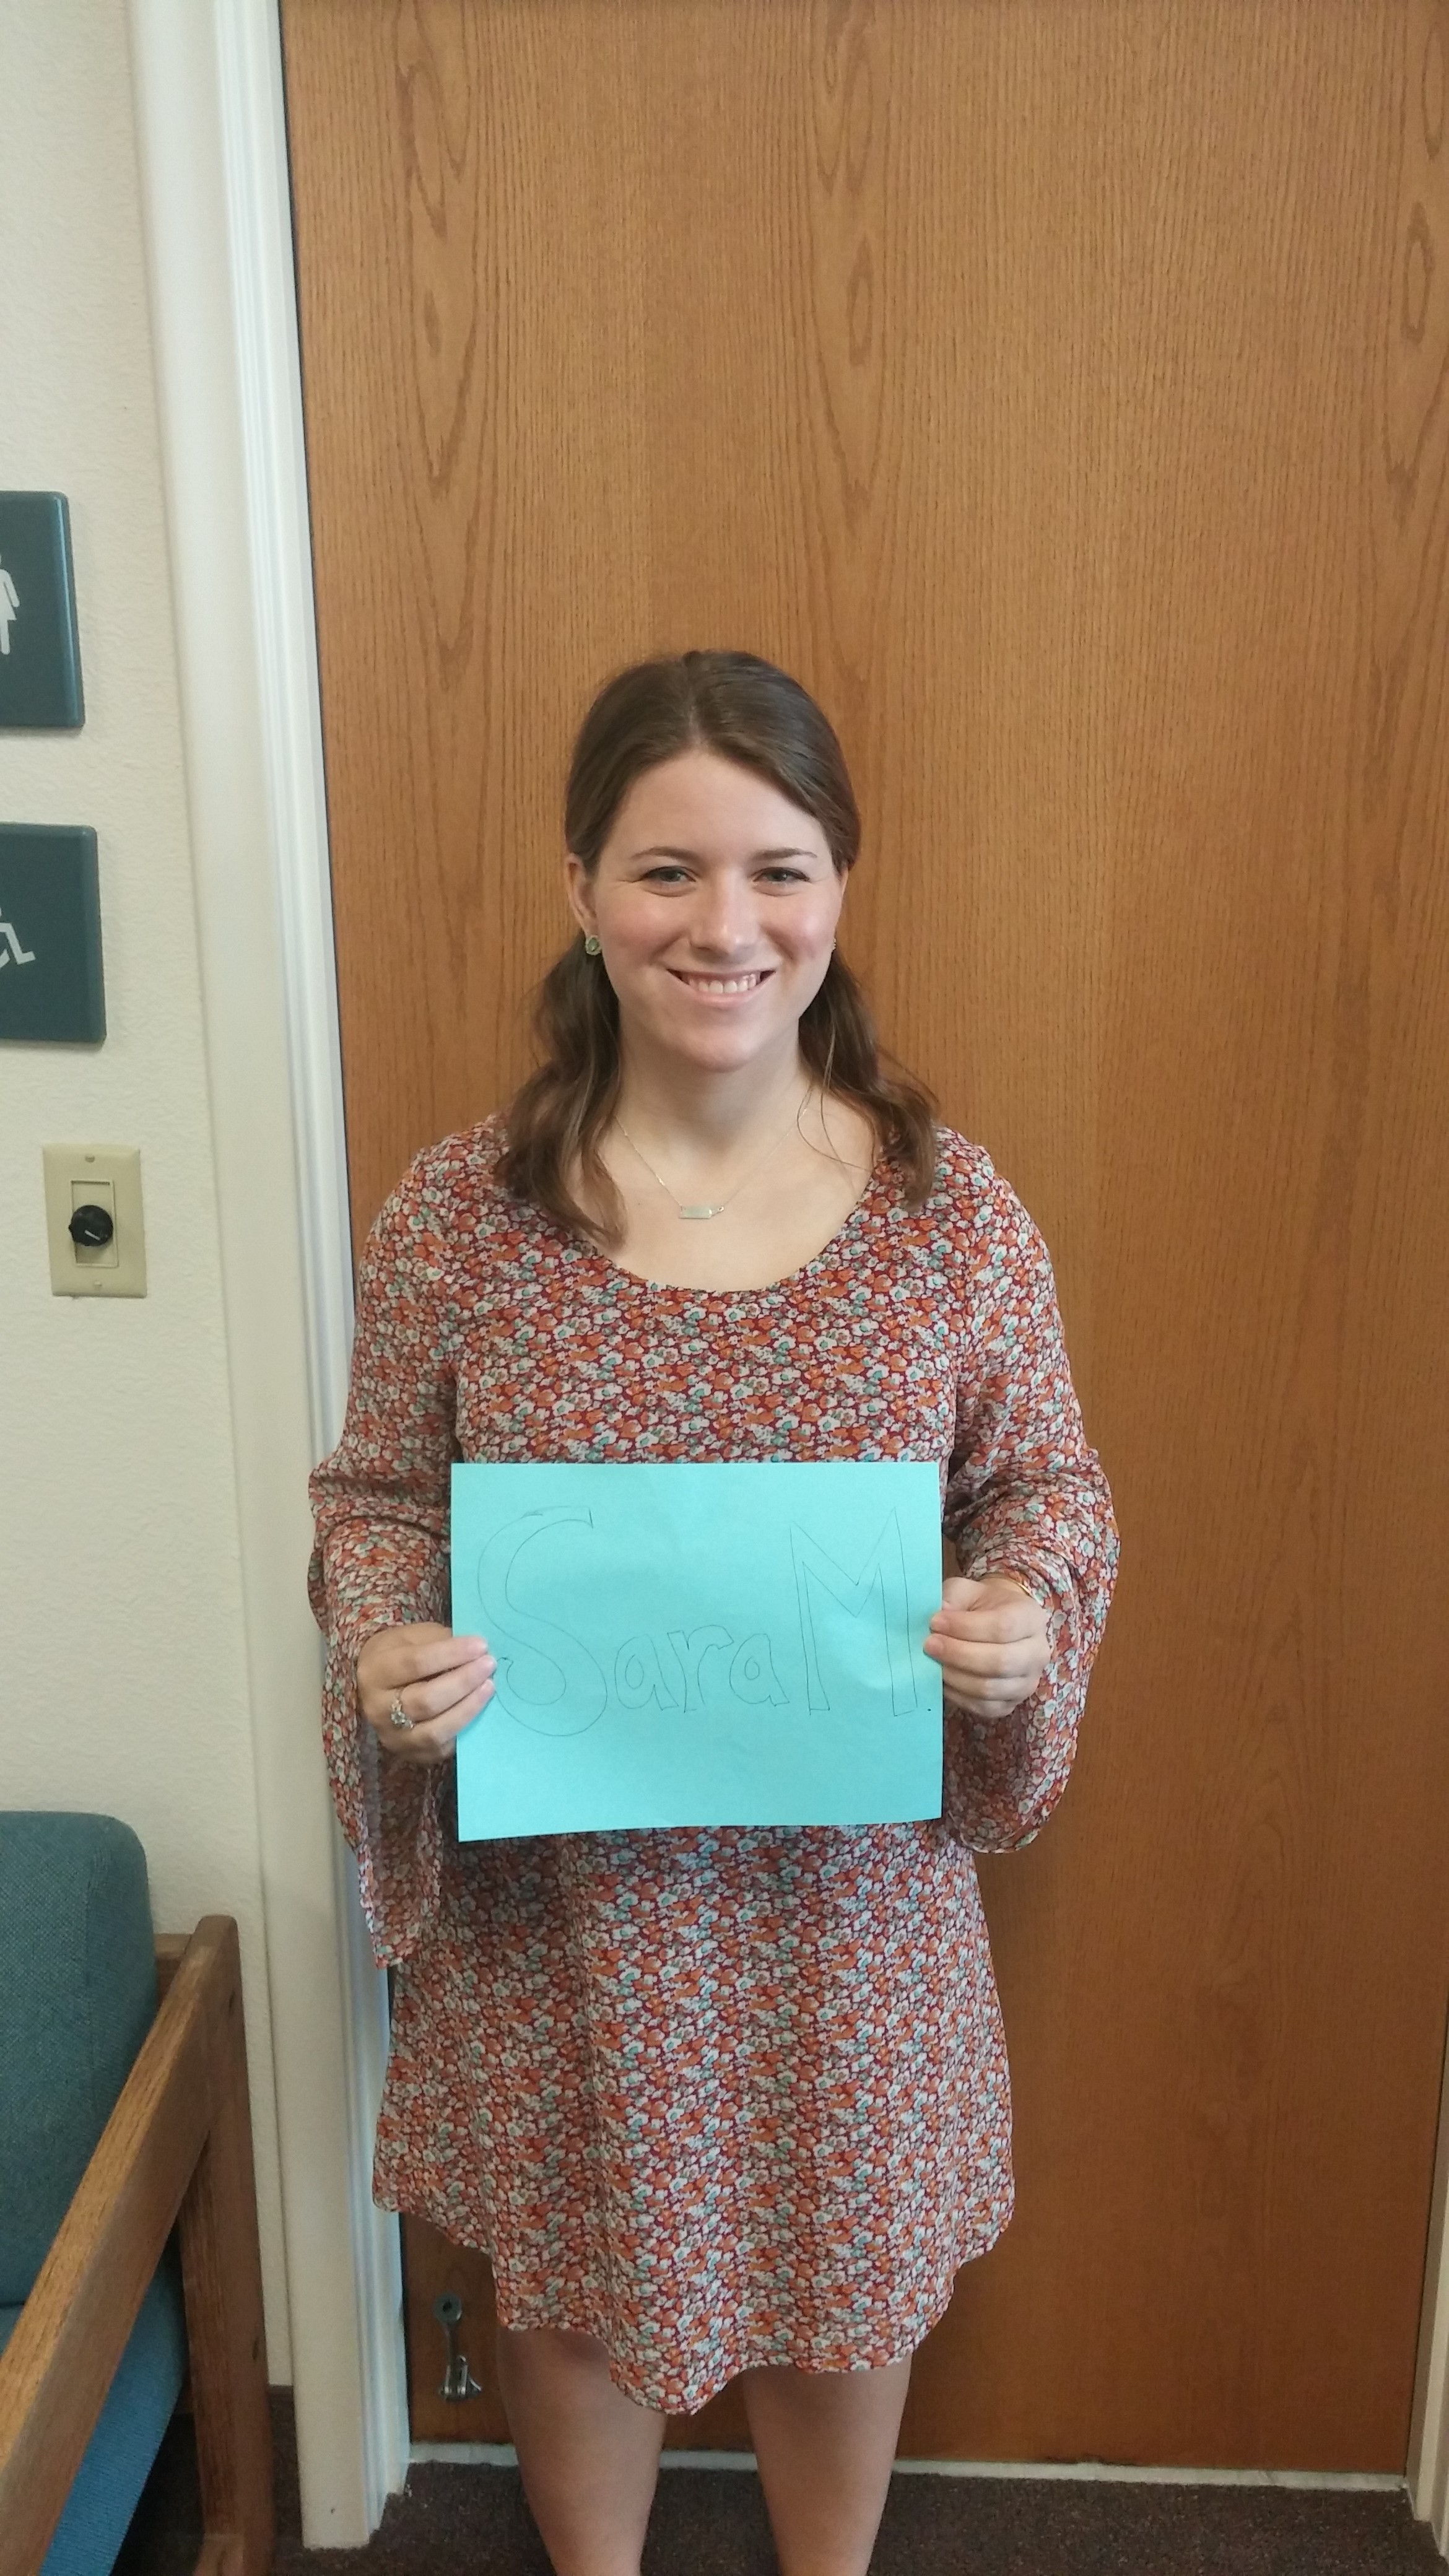 Sara M.